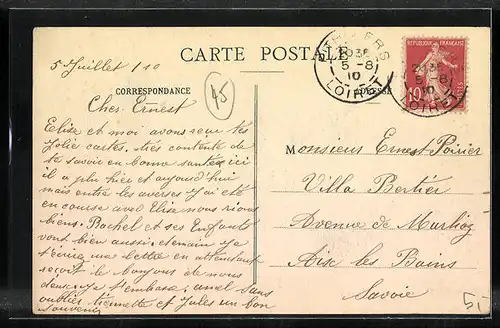 5 Juillet 1910
CARTE POSTALE
PITHIVIERS
5 -8
10
LOIRET
REPUBLIQUE FRANÇAISE
10
5 -8
10
LOIRET
CORRESPONDANCE
ADRESSE
45
Cher Ernest
Elise et moi avons reçu tes
Jolie cartes, très contente de
te savoir en bonne santée, ici
il a plu hier et aujourd hui
mais entre les averses j'ai été
en course avec Elise nous rions
biens. Rachel et ses Enfants
vont bien aussi, demain je
t'enverrai une lettre en attendant
reçoit le bonjour de nous
deux, je t'embrasse, amel sans
oublier tiennette et Jules un bon
souvenir
Monsieur Ernest Poirier
Villa Bertier
Avenue de Marlioz
Aix les Bains
Savoie
5-